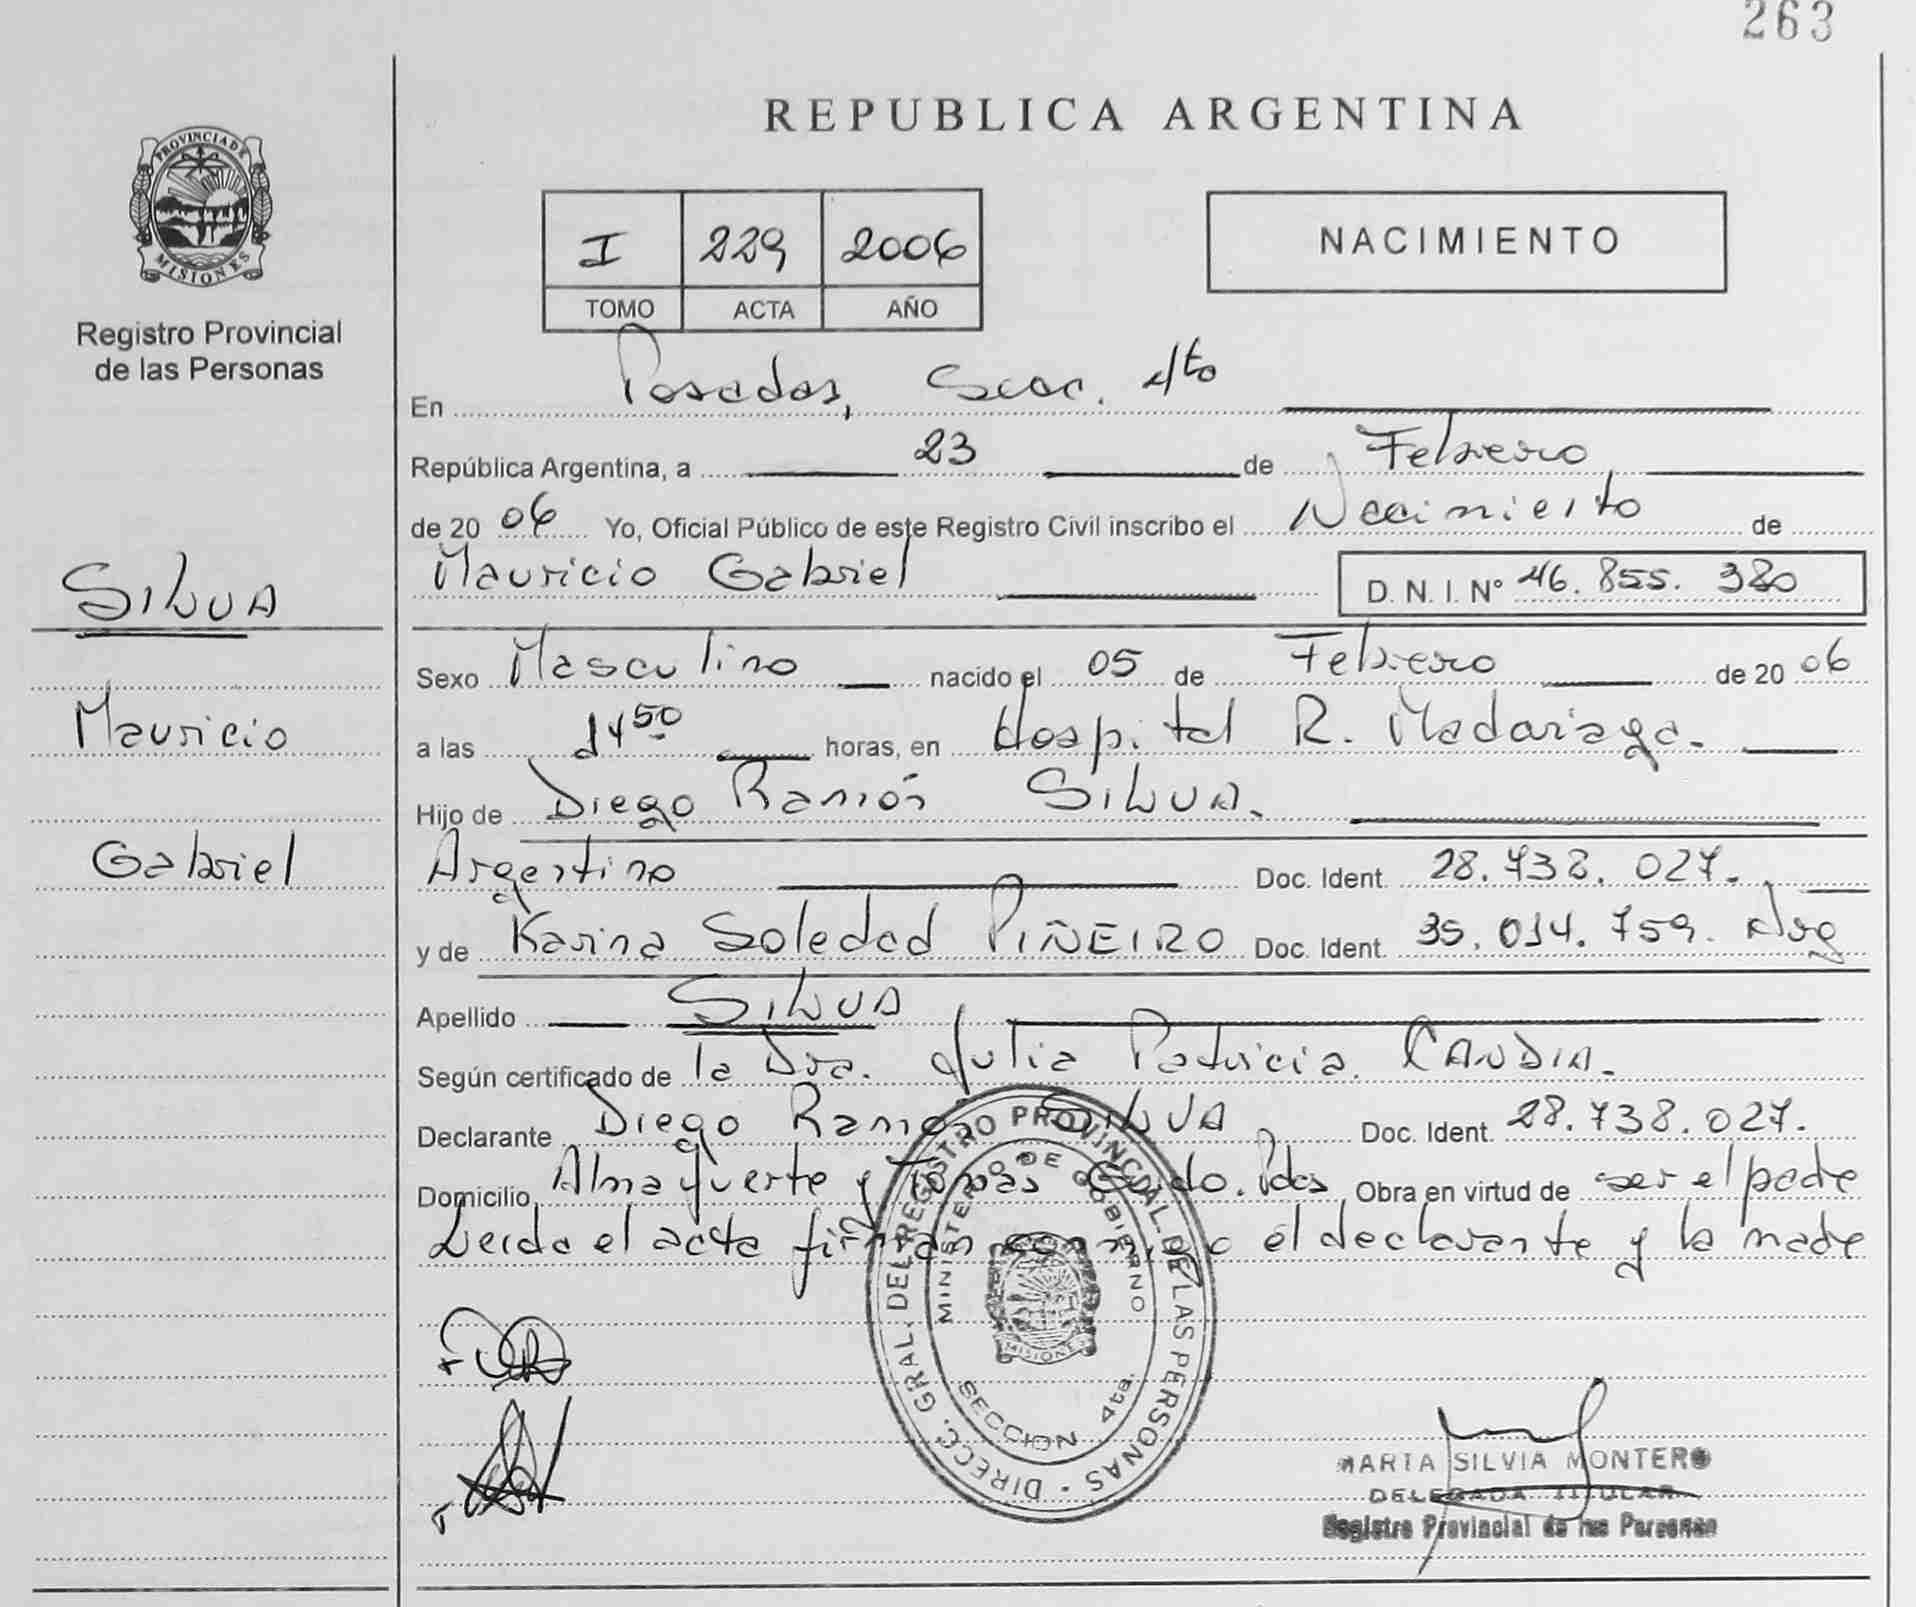 263
REPUBLICA ARGENTINA
PROVINCIA DE
MISIONES
Registro Provincial
de las Personas
I 229 2006
TOMO ACTA AÑO
NACIMIENTO
En Posadas, Secc. 4to
República Argentina, a 23 de Febrero
de 2006 Yo, Oficial Público de este Registro Civil inscribo el Nacimiento de
SILVA
Mauricio Gabriel D. N. I. Nº 46.855.380
Sexo Masculino nacido el 05 de Febrero de 2006
Mauricio
a las 14 50 horas, en Hospital R. Madariaga.
Hijo de Diego Ramón SILVA.
Gabriel
Argentino Doc. Ident. 28.738.027.
y de Karina Soledad PIÑEIRO Doc. Ident. 35.014.759. Arg
Apellido SILVA
Según certificado de la Dra. Julia Patricia CANDIA.
Declarante Diego Ramón SILVA Doc. Ident. 28.738.027.
Domicilio Almafuerte y Tomás Guido. Pdas Obra en virtud de ser el padre
Leida el acta firman conmigo el declarante y la madre
DIRECC. GRAL. DEL REGISTRO PROVINCIAL DE LAS PERSONAS -
MINISTERIO DE GOBIERNO
MISIONES
SECCION 4ta.
MARTA SILVIA MONTERO
DELEGADA TITULAR
Registro Provincial de las Personas